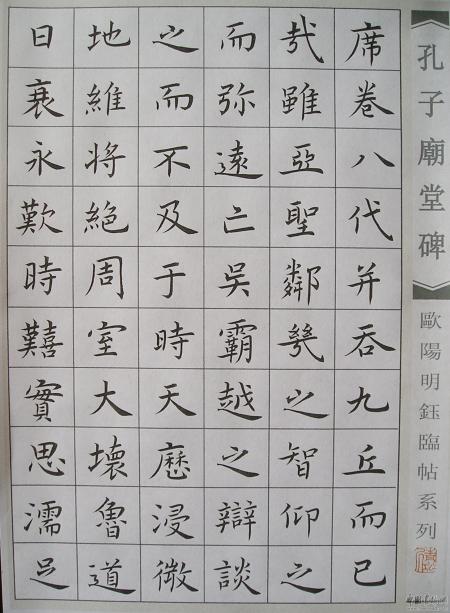 孔子廟堂碑
歐陽明鈺臨帖系列
席卷八代并吞九丘而已
哉雖亞聖鄰幾之智仰之
而弥遠亡吳霸越之辯談
之而不及于時天歷浸微
地維将絕周室大壞魯道
日衰永歎時囏實思濡足